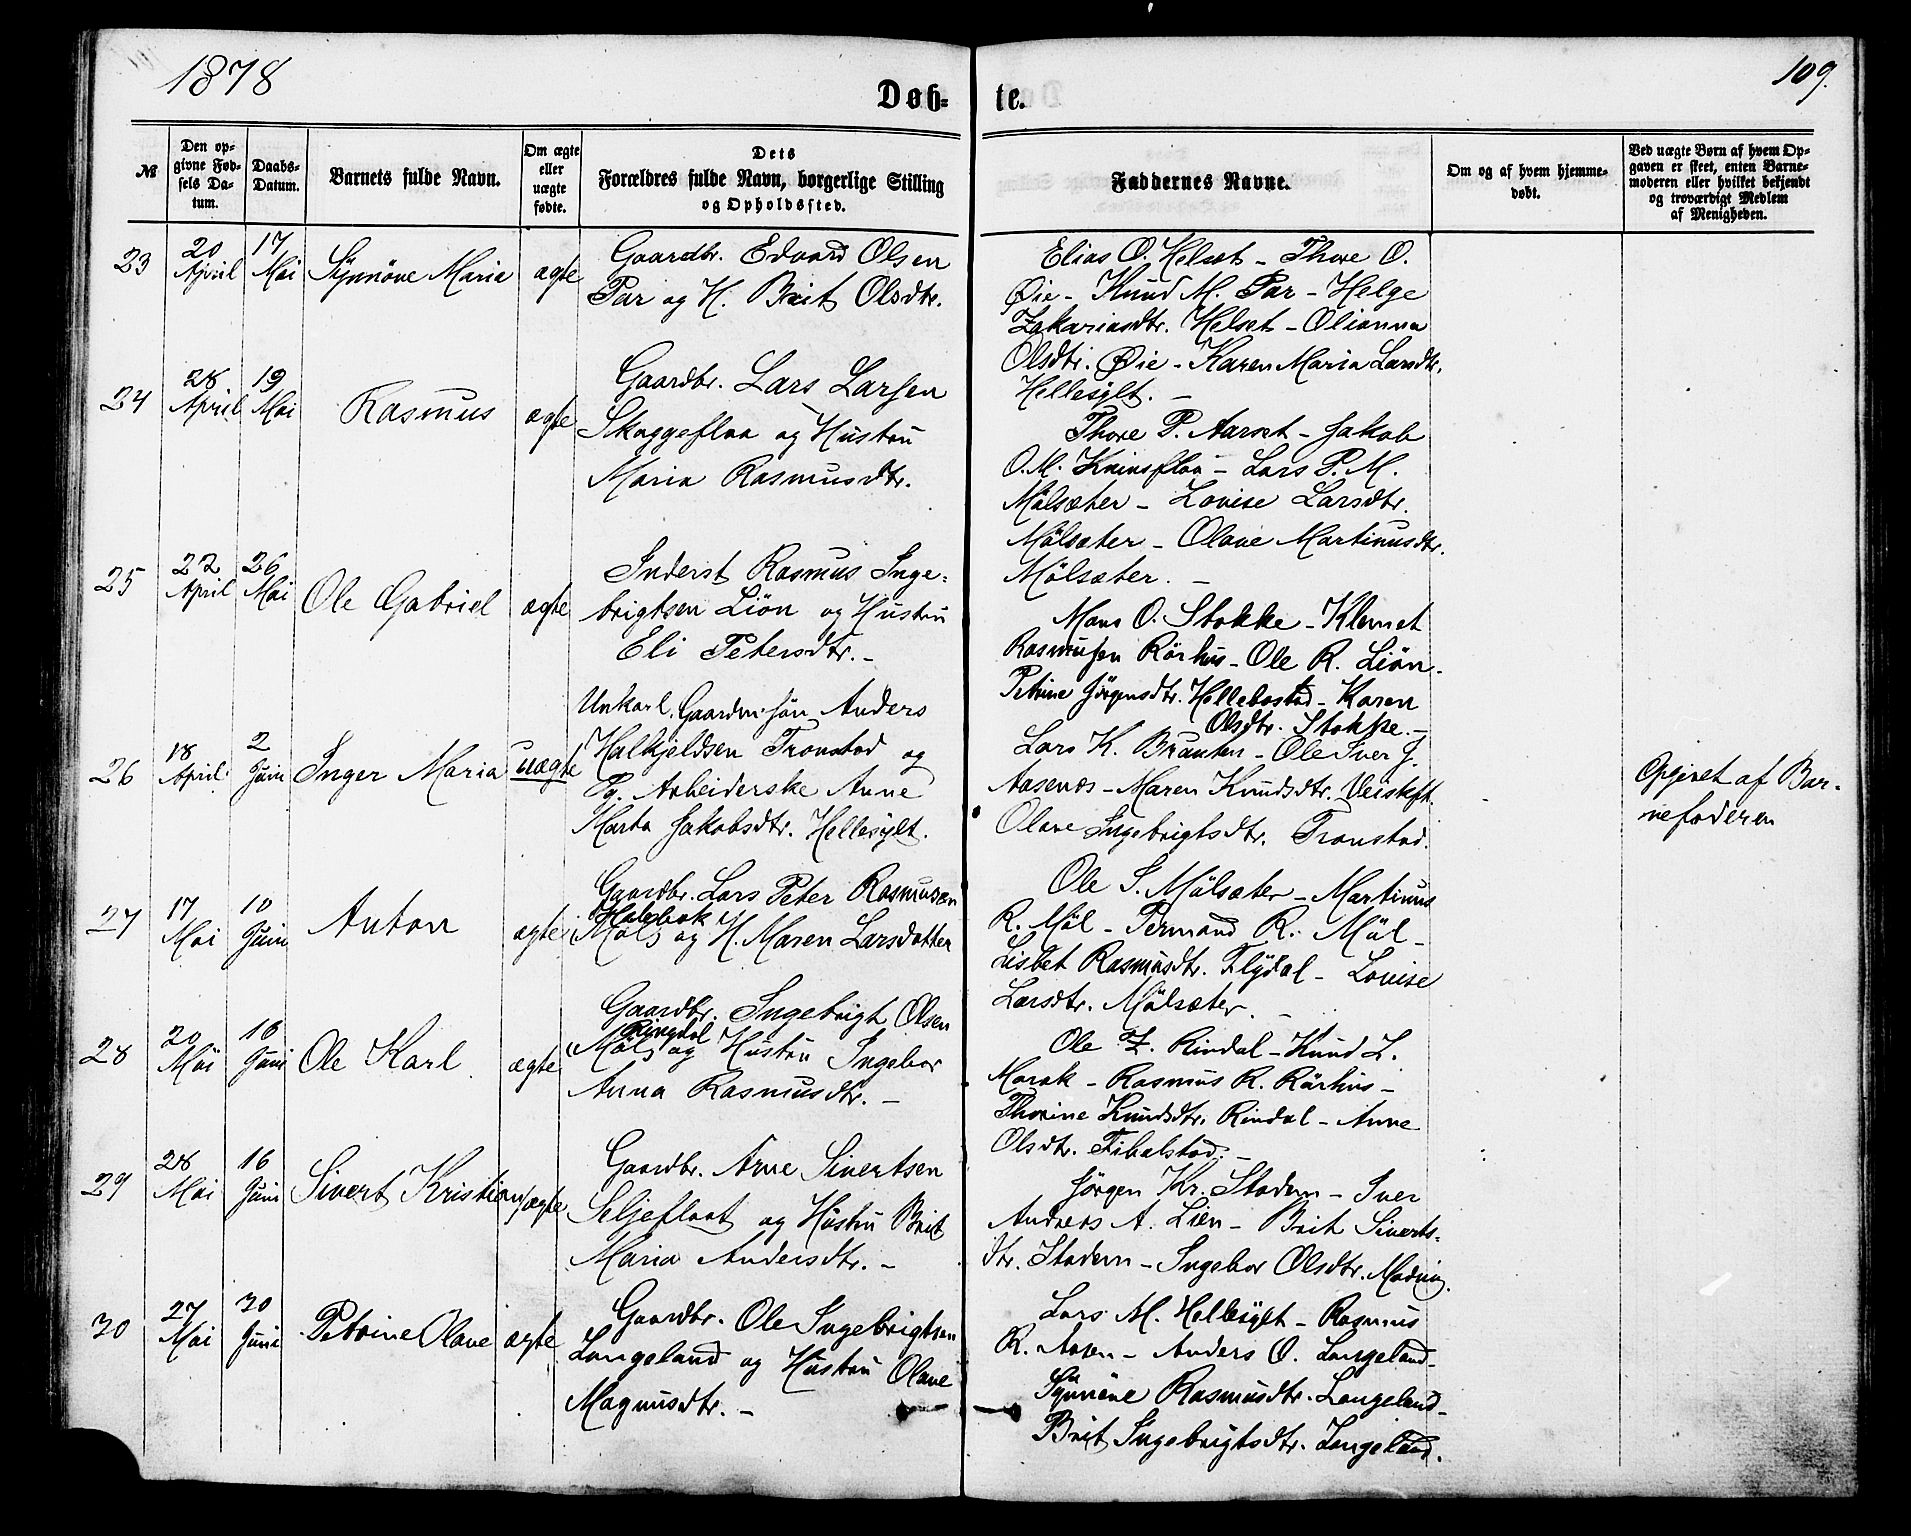 1878
Døb-
te.
109.
№
Den op-
givne Fød-
sels Da-
tum.
Daabs-
Datum.
Barnets fulde Navn.
Om ægte
eller
uægte
fødte.
Dets
Forældres fulde Navn, borgerlige Stilling
og Opholdssted.
Faddernes Navne.
Om og af hvem hjemme-
døbt.
Ved uægte Børn af hvem Op-
gaven er skeet, enten Barne-
moderen eller hvilket bekjendt
og troværdigt Medlem
af Menigheden.
23
20
April
17
Mai
Synnöve Maria
ægte
Gaardbr. Edvard Olsen
Par og H. Brit Olsdtr.
Elias O. Helset - Thore O.
Øie - Knud M. Par - Helge
Zakariasdtr. Helset - Olianna
Olsdtr. Øie - Karen Maria Larsdtr.
Hellesylt. -
24
28
April
19
Mai
Rasmus
ægte
Gaardbr. Lars Larsen
Skaggeflaa og Hustru
Maria Rasmusdtr.
Thore P. Aarset - Jakob
O. M. Knivsflaa - Lars P. M.
Mölsæter - Lovise Larsdtr.
Mölsæter - Olave Martinusdtr.
Mölsæter. -
25
22
April
26
Mai
Ole Gabriel
ægte
Inderst Rasmus Inge-
brigtsen Liön og Hustru
Eli Petersdtr. -
Mons O. Stokke - Klemet
Rasmusen Rörhus - Ole R. Liön -
Petrine Jörgensdtr. Hellebostad - Karen
Olsdtr. Stokke. -
26
18
April
2
Juni
Inger Maria
uægte
Unkarl. Gaardm. sön Anders
Halkjeldsen Tronstad og
Pg. Arbeiderske Anne
Marta Jakobsdtr. Hellesylt.
Lars K. - Ole Iver J.
Aasenæs - Maren Knudsdtr.
Olave Ingebrigtsdtr. Tronstad.
Opgivet af Bar-
nefaderen
27
17
Mai
10
Juni
Anton
ægte
Gaardbr. Lars Peter Rasmusen
Holebak
(Möl) og H. Maren Larsdatter
Ole S. Mölsæter - Martinus
R. Möl - Permand R. Möl -
Lisbet Rasmusdtr. Flydal - Lovise
Larsdtr. Mölsæter. -
28
20
Mai
16
Juni
Ole Karl
ægte
Gaardbr. Ingebrigt Olsen
Ringdal
(Möl) og Hustru Ingebor
Anna Rasmusdtr. -
Ole Z. Rindal - Knud L.
Marak - Rasmus R. Rörhus -
Thorine Knudsdtr. Rindal - Anne
Olsdtr. Fibelstad. -
29
28
Mai
16
Juni
Sivert Kristian
ægte
Gaardbr. Arne Sivertsen
Seljeflaat og Hustru Brit
Maria Andersdtr. -
Jörgen Kr. Stadem - Iver
Andreas A. Lien - Brit Siverts-
dtr. Stadem - Ingebor Olsdtr.
30
27
Mai
30
Juni
Petrine Olave
ægte
Gaardbr. Ole Ingebrigtsen
Langeland og Hustru Olave
Magnusdtr. -
Lars M. Hellesylt - Rasmus
R. Aasen - Anders O. Langeland -
Synnöve Rasmusdtr. Langeland -
Brit Ingebrigtsdtr. Langeland.